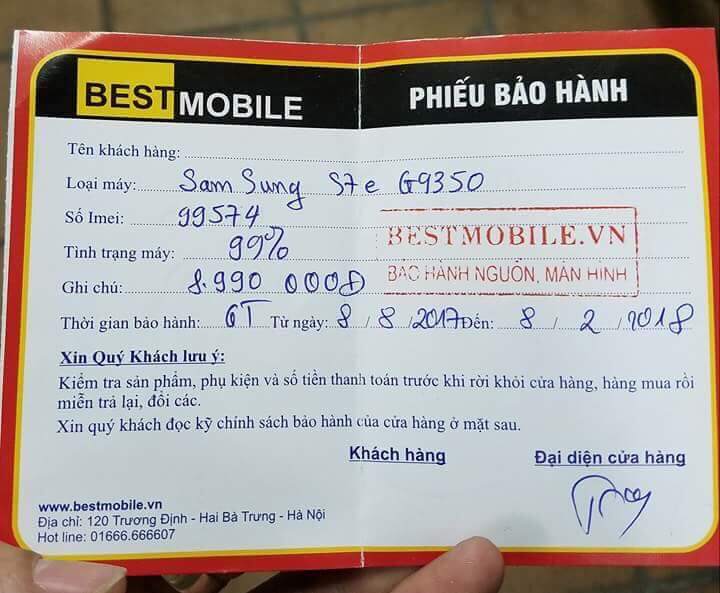 BESTMOBILE
PHIẾU BẢO HÀNH
Tên khách hàng:
Loại máy: SamSung S7e G9350
Số Imei: 99574
Tình trạng máy: 99%
Ghi chú: 8.990 000Đ
BESTMOBILE.VN
BẢO HÀNH NGUỒN, MÀN HÌNH
Thời gian bảo hành: 6T Từ ngày: 8 / 8 /2017 Đến: 8 / 2 /2018
Xin Quý Khách lưu ý:
Kiểm tra sản phẩm, phụ kiện và số tiền thanh toán trước khi rời khỏi cửa hàng, hàng mua rồi
miễn trả lại, đổi các.
Xin quý khách đọc kỹ chính sách bảo hành của cửa hàng ở mặt sau.
Khách hàng
Đại diện cửa hàng
www.bestmobile.vn
Địa chỉ: 120 Trương Định - Hai Bà Trưng - Hà Nội
Hot line: 01666.666607